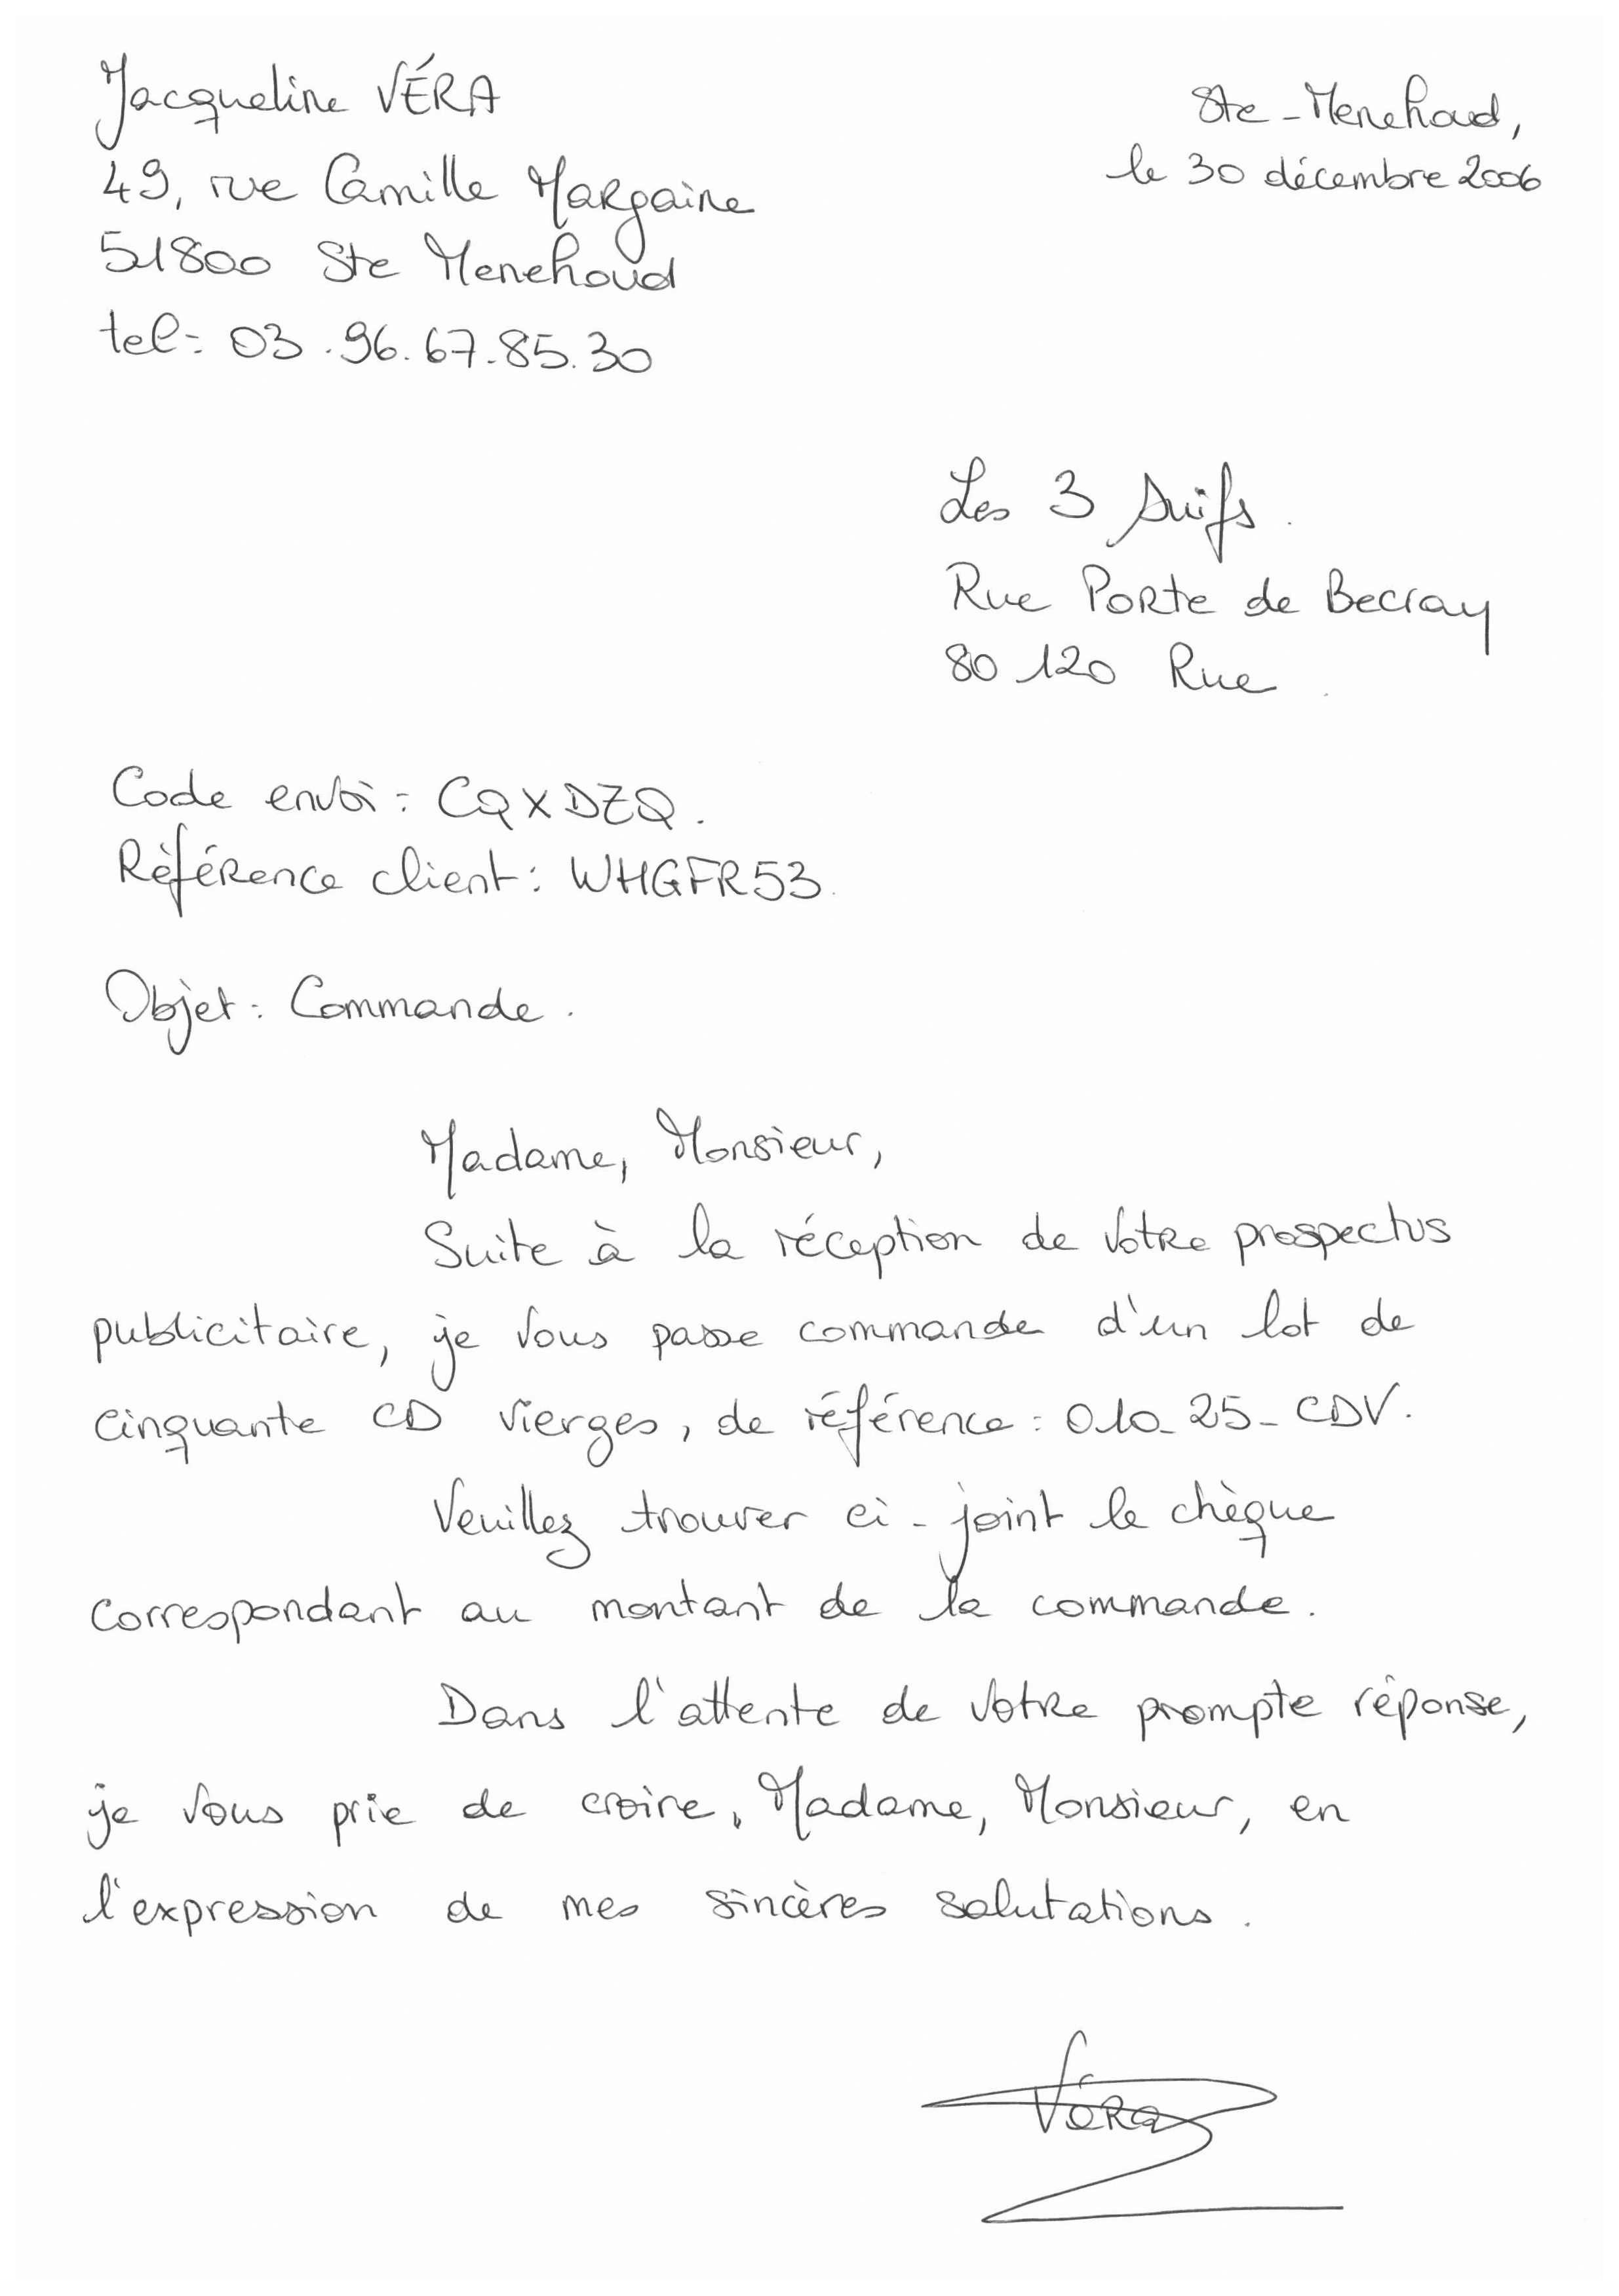 Jacqueline VÉRA
49, rue Camille Margaine
51800 Ste Menehoud
tel: 03.96.67.85.30
Ste-Menehoud,
le 30 décembre 2006
Les 3 Suifs.
Rue Porte de Becray
80 120 Rue.
Code envoi: CQXDZQ.
Référence client: WHGFR53.
Objet: Commande.
Madame, Monsieur,
Suite à la réception de votre prospectus
publicitaire, je vous passe commande d'un lot de
cinquante CD vierges, de référence: 010-25-CDV.
Veuillez trouver ci-joint le chèque
correspondant au montant de la commande.
Dans l'attente de votre prompte réponse,
je vous prie de croire, Madame, Monsieur, en
l'expression de mes sincères salutations.
Véra